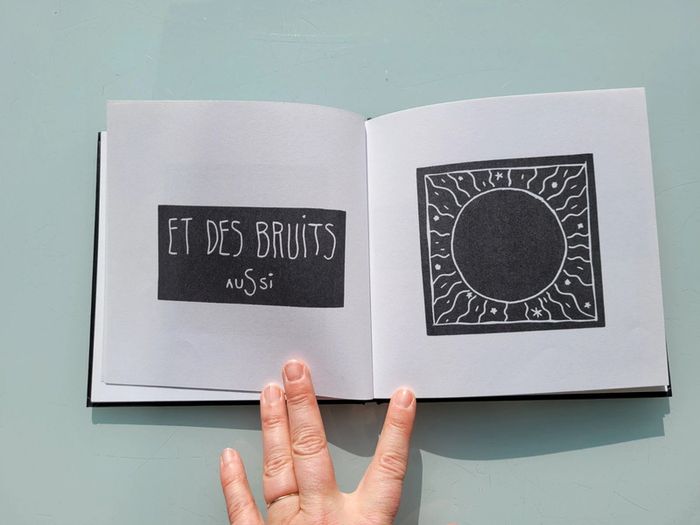 ET DES BRUiTS
AUSSi